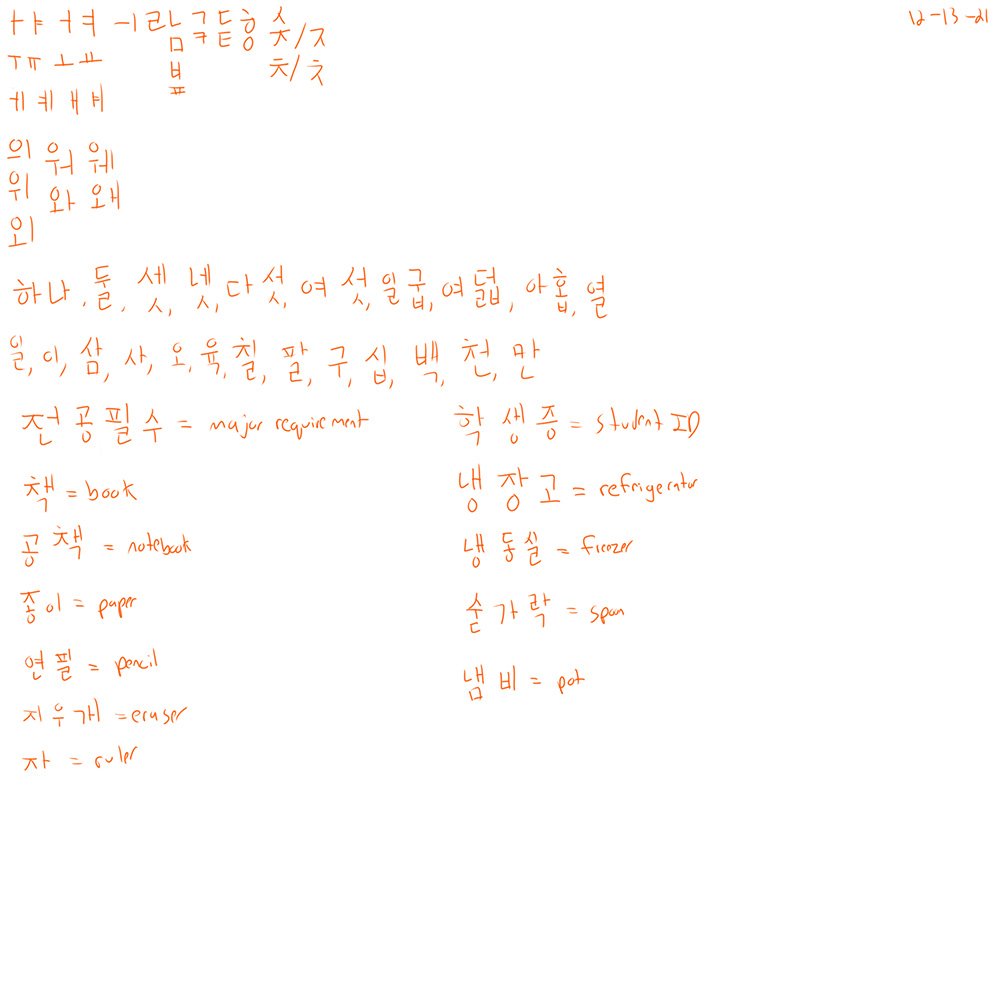 12-13-21
ㅏㅑ ㅓㅕ ㅡㅣ
ㅜㅠ ㅗㅛ
ㅔㅖㅐㅒ
의 워 웨
위 와 왜
외
하나, 둘, 셋, 넷, 다섯, 여섯, 일굽, 여덟, 아홉, 열
일, 이, 삼, 사, 오, 육, 칠, 팔, 구, 십, 백, 천, 만
전공필수 = major requirement
책 = book
공책 = notebook
종이 = paper
연필 = pencil
지우개 = eraser
자 = ruler
학생증 = student ID
냉장고 = refrigerator
냉동실 = freezer
숟가락 = spoon
냄비 = pot